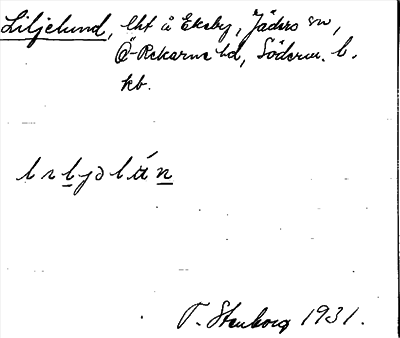 Liljelund, lht å Ekeby, Jäders sn,
Ö-Rekarne hd, Söderm. l.
kb.
T. Stenborg 1931.